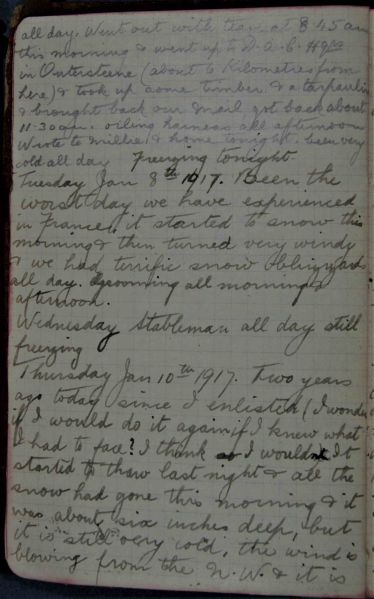 all day. Went out with team at 8.45 am
this morning & went up to D.A.C. Hqrs
in Outersteene (about 6 Kilometres from
here) & took up some timber & a tarpaulin
& brought back our mail, got back about
11-30 am. oiling harness all afternoon
Wrote to Millie & home tonight. been very
cold all day Freezing tonight
Tuesday Jan 8th 1917. Been the
worst day we have experienced
in France, it started to snow this
morning & then turned very windy
& we had terrific snow blizzards
all day. Grooming all morning &
afternoon.
Wednesday Stableman all day still
freezing
Thursday Jan 10th 1917. Two years
ago today since I enlisted (I wonder
if I would do it again if I knew what
I had to face? I think I wouldnt It
started to thaw last night & all the
snow had gone this morning & it
was about six inches deep, but
it is still very cold, the wind is
blowing from the N.W. & it is